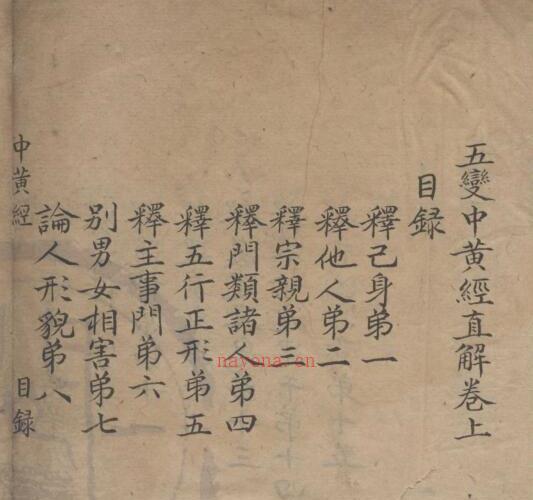 五變中黃經直解卷上
目録
釋己身弟一
釋他人弟二
釋宗親弟三
釋門類諸人弟四
釋五行正形弟五
釋主事門弟六
別男女相害弟七
論人形貌弟八
中黃經
目録
nayona.cn